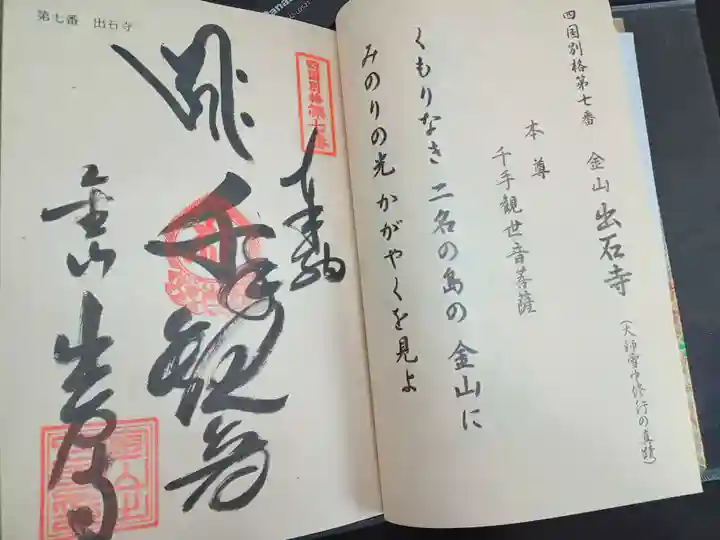 四国別格第七番 金山 出石寺 (大師雪中修行の真蹟)
本尊
千手観世音菩薩
くもりなき 二名の島の 金山に
みのりの光 かがやくを見よ
第七番 出石寺
奉納
千手観音
金山 出石寺